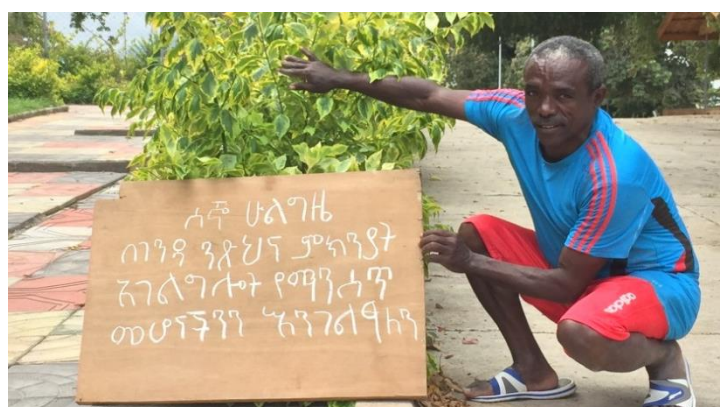 ሰኞ ሁልግዜ
በገንዳ ንጽህና ምክንያት
አገልግሎት የማንሰጥ
መሆናችንን እንገልፃለን
adidas